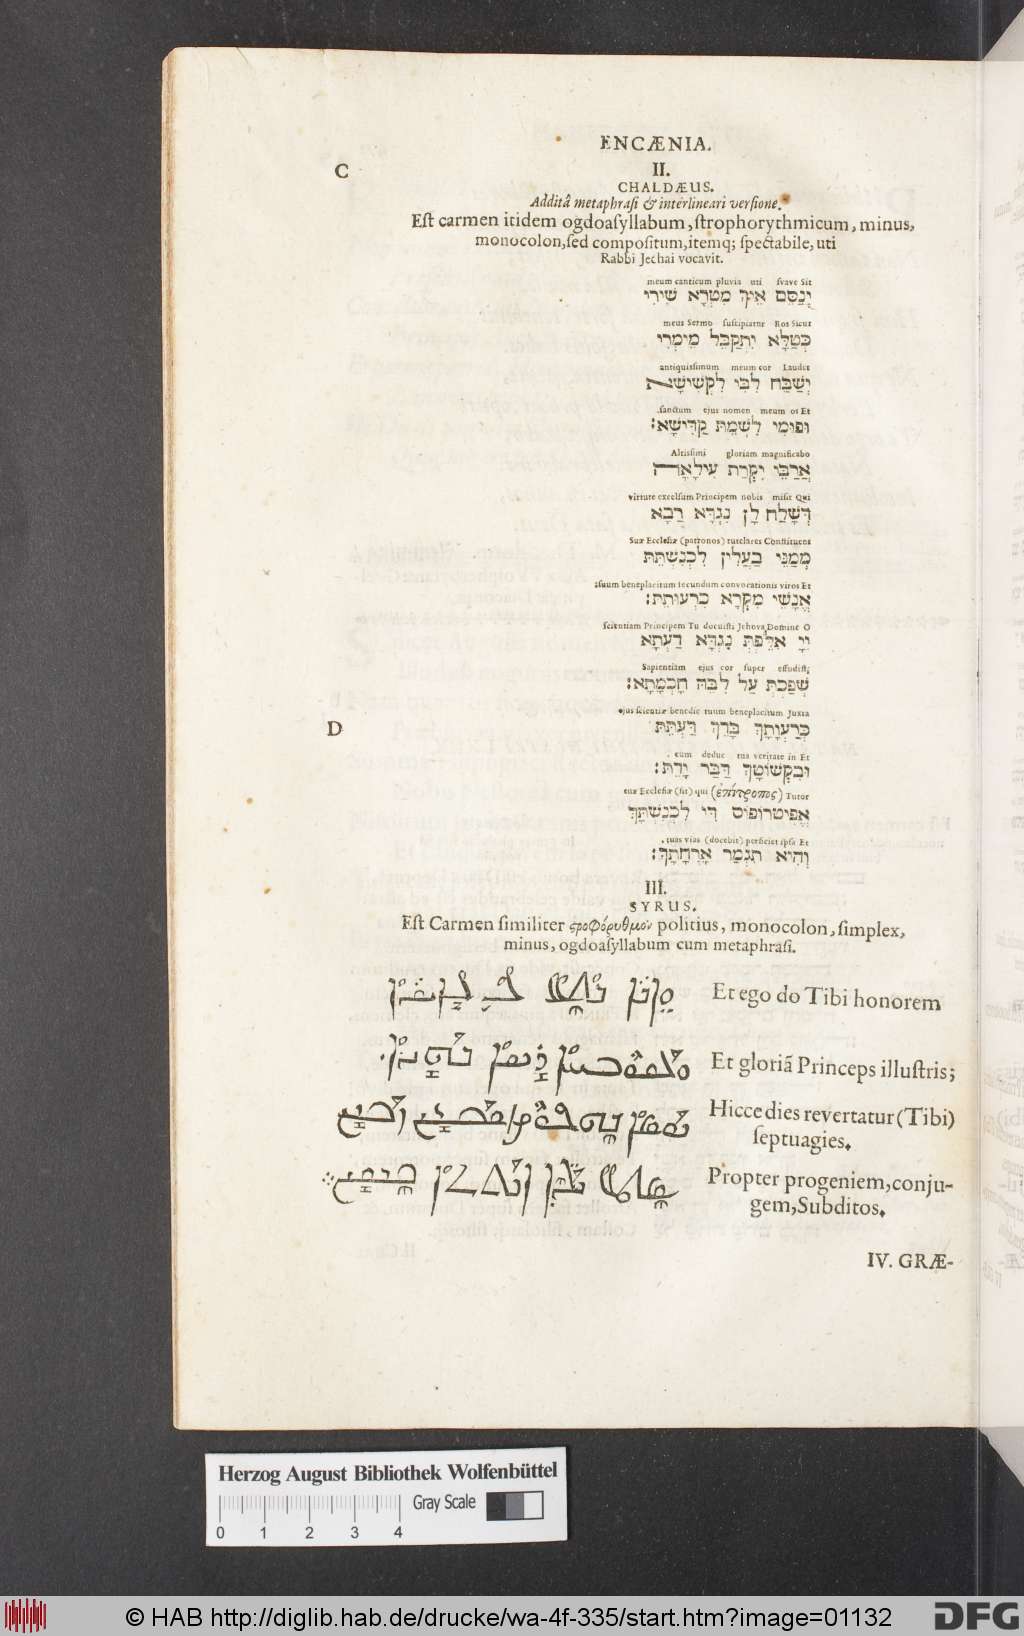 ENCÆNIA.
C
II.
CHALDÆUS.
Additâ metaphrasi & interlineari versione.
Est carmen itidem ogdoasyllabum, strophorythmicum, minus,
monocolon, sed compositum, itemq; spectabile, uti
Rabbi Jechai vocavit.
meum canticum pluvia uti suave Sit
יְנַסֵּם אֵיךְ מִטְרָא שִׁירִי
meus Sermo suscipiatur Ros Sicut
כְּטַלָּא יִתְקַבֵּל מֵימְרִי
antiquissimum meum cor Laudet
יְשַׁבַּח לִבִּי לְקְשִׁישָׁא
sanctum ejus nomen meum os Et
וּפוּמִי לִשְׁמֵהּ קַדִּישָׁא׃
Altissimi gloriam magnificabo
אֲרַבֵּי יְקָרַת עִילָאָה
virtute excelsum Principem nobis misit Qui
דְּשָׁלַח לָן נְגְדָא רַבָא
Suæ Ecclesiæ (patronos) tutelares Constituens
מְמַנֵּי בַעֲלִין לִכְנִשְׁתֵּהּ
suum beneplacitum secundum convocationis viros Et
אֱנָשֵׁי מִקְרָא כִּרְעוּתֵהּ׃
scientiam Principem Tu docuisti Jehova Domine O
יְיָ אַלֵּפְתְּ נָגְדָא דַעְתָּא
Sapientiam ejus cor super effudisti;
שְׁפַכְתְּ עַל לִבֵּהּ חָכְמָתָא׃
ejus scientiæ benedic tuum beneplacitum Juxta
כְּרַעְוָתָךְ בָּרֵךְ דַּעְתֵּהּ
D
eum deduc tua veritate in Et
וּבְקְשׁוֹטָךְ דַּבַּר יָדֵהּ׃
tuæ Ecclesiæ (fit) qui (ἐπίτροπος) Tutor
אֱפִיטרוֹפוֹס דִּי לִכְנִשְׁתָּךְ
tuas vias (docebit) perficiet ipsa Et
וְהִיא תִגְמַר אָרְחָתָךְ׃
III.
SYRUS.
Est Carmen similiter ςροφόρυθμον politius, monocolon, simplex,
minus, ogdoasyllabum cum metaphrasi.
Et ego do Tibi honorem
Et gloriā Princeps illustris;
Hicce dies revertatur (Tibi)
septuagies.
Propter progeniem, conju-
gem, Subditos.
IV. GRÆ-
Herzog August Bibliothek Wolfenbüttel
Gray Scale
0 1 2 3 4
© HAB http://diglib.hab.de/drucke/wa-4f-335/start.htm?image=01132
DFG